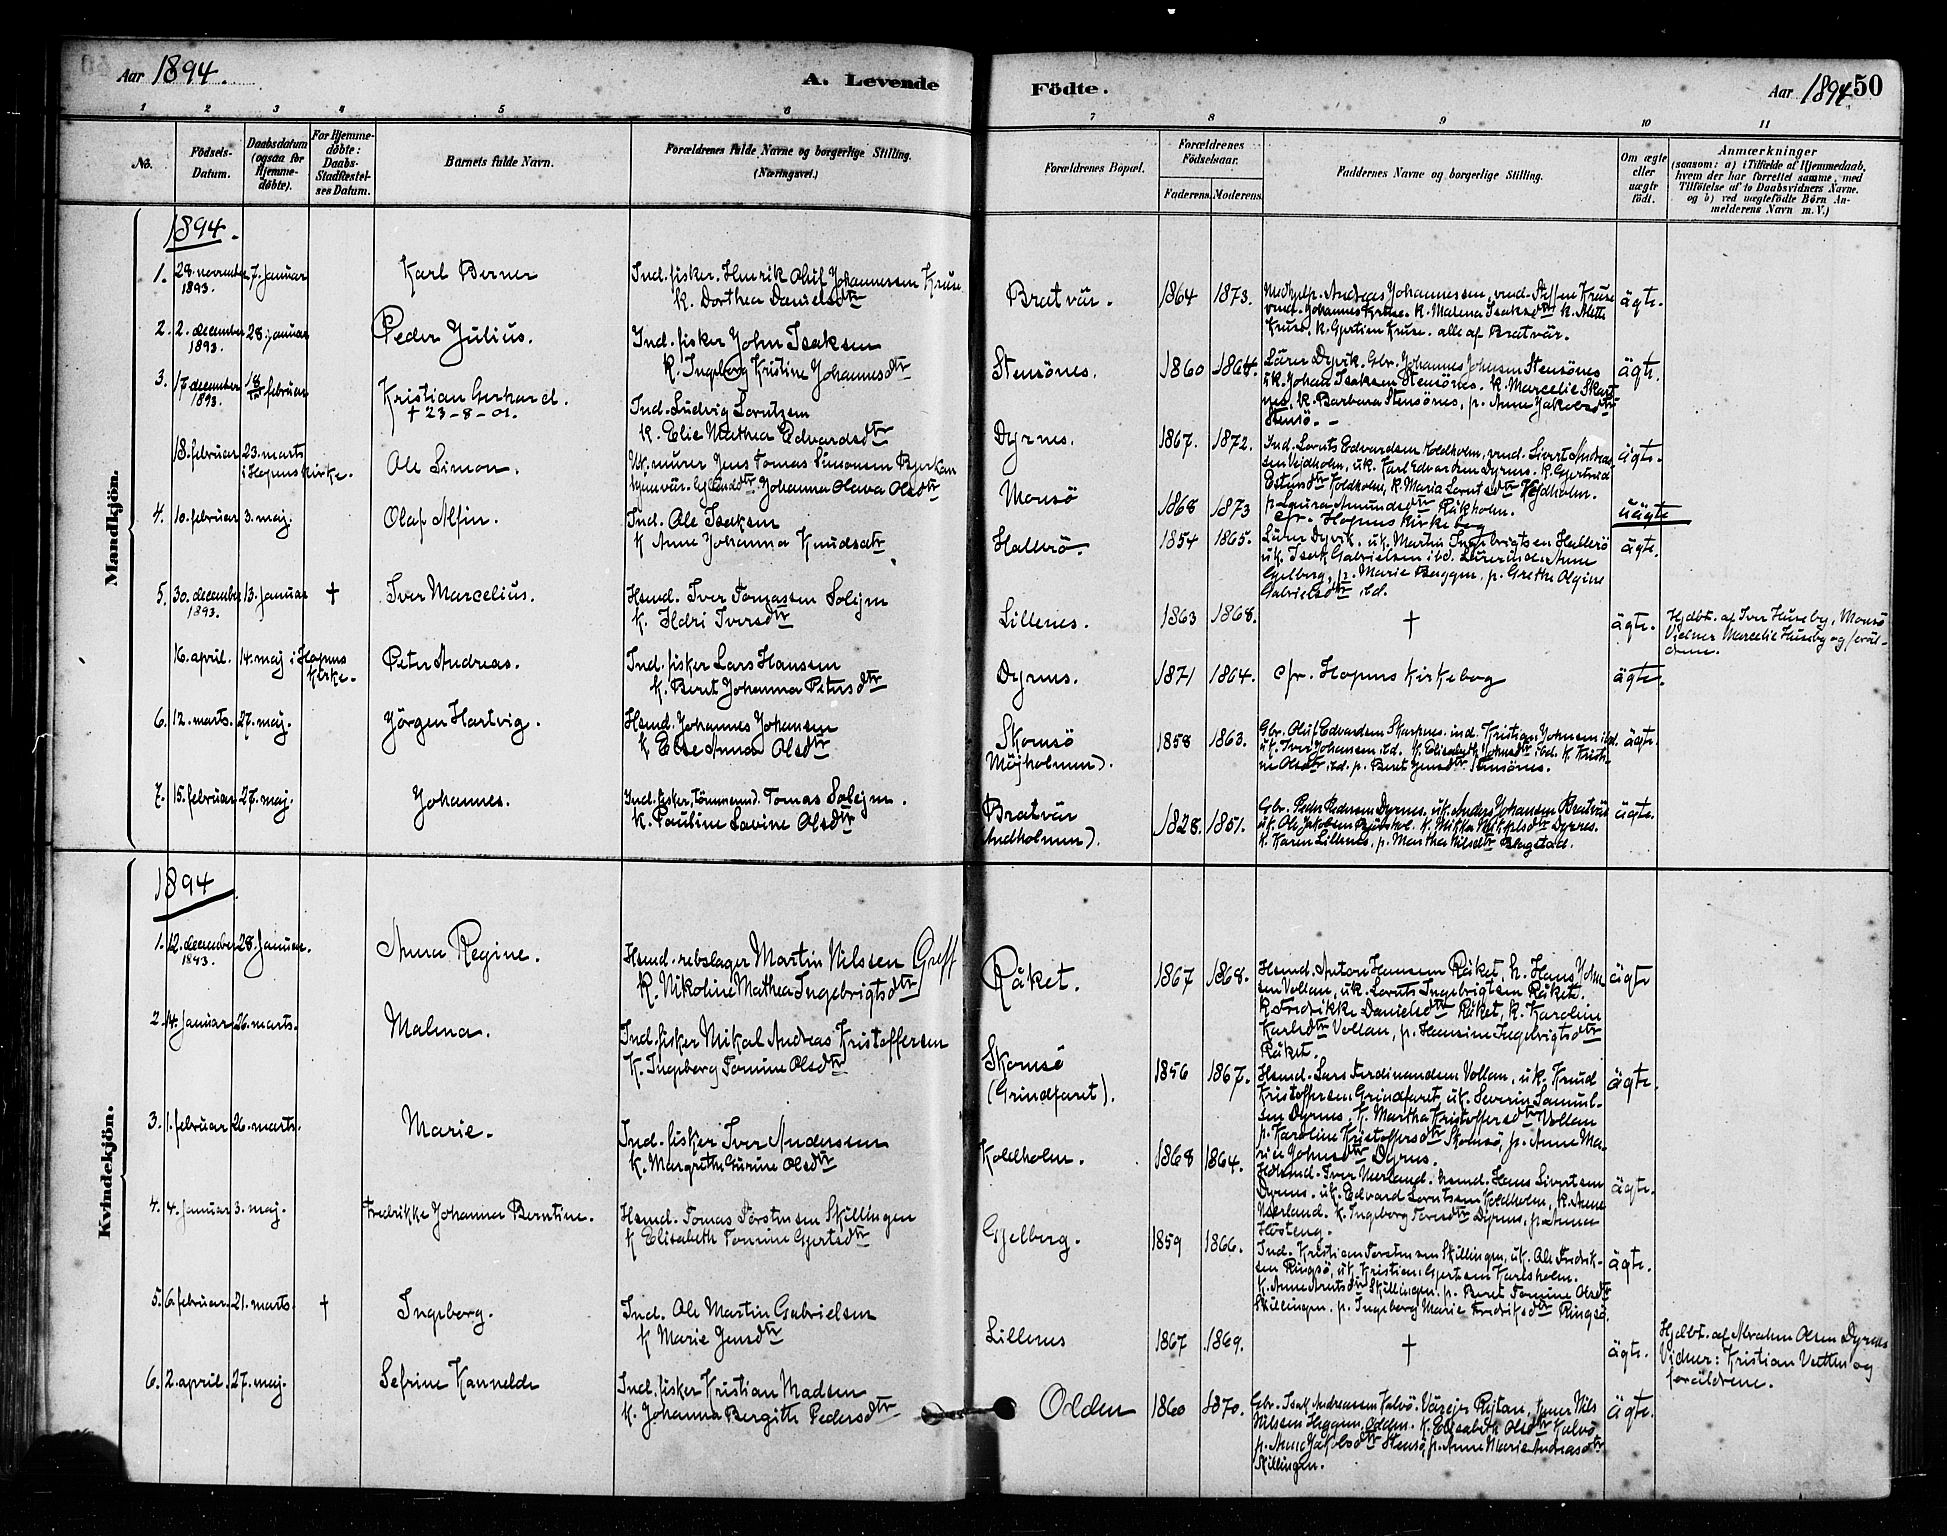 Aar 1894.
A. Levende
Födte.
Aar 1894.
50
1
2
3
4
5
6
7
8
9
10
11
No.
Födsels-
Datum.
Daabsdatum
(ogsaa for
Hjemme-
döbte).
For Hjemme-
döbte:
Daabs-
Stadfæstel-
ses Datum.
Barnets fulde Navn.
Forældrenes fulde Navne og borgerlige Stilling.
(Næringsvei.)
Forældrenes Bopæl.
Forældrenes
Födselsaar.
Faderens.
Moderens.
Faddernes Navne og borgerlige Stilling.
Om ægte
eller
uægte
födt.
Anmærkninger
(saasom: a) i Tilfælde af Hjemmedaab,
hvem der har forrettet samme, med
Tilföielse af to Daabsvidners Navne.
og b) ved uægtefödte Börn An-
melderens Navn m.V.)
Mandkjön.
1894.
1. 28. november 1893. 7. januar Karl Berner
Ind. fisker Henrik Oluf Johannessen Kruse
k. Dorthea Danielsdtr
Bratvär. 1864 1873.
Andreas Johannessen, Steffen Kruse
Johannes Kruse. k. Malena Isaksdtr k. Alette
Kruse. k. Gjertien Kruse. alle af Bratvär.
ägte.
2. 2. december 1893. 28. januar Peder Julius.
Ind. fisker John Isaksen
k. Ingeborg Kristine Johannesdtr
Stensönes. 1860 1864.
Lärer Dyrvik. Gbr. Johannes Johnsen Stensönes
uk. Johan Isaksen Stensönes. k. Marcelie Skarp-
nes, k. Barbara Stensönes, p. Anne Jakobsdtr
Stensö.
ägte.
3. 17 december 1893. 18 februar Kristian Gerhard.
+ 23-8-01.
Ind. Ludvig Lorntzen
k. Elie Mathea Edvardsdtr
Dyrnes. 1867. 1872.
Ind. Lornts Edvardsen Koldholm, Sivert Andrea-
sen Vejdholm, uk. Karl Edvardsen Dyrnes. k. Gjertrud
Koldholm, k. Maria Lorntsdtr Vejdholm.
p. Laura Amundsdtr Räkholm.
ägte.
18. februar 23. marts
i Hopens Kirke. Ole Simon.
Uk. murer Jens Tomas Simonsen Bjerkan
Johanna Olava Olsdtr
Monsö 1868 1873
cfr. Hopens kirkebog
uägte
4. 10. februar 3. maj. Olaf Alfin.
Ind. Ole Isaksen
k Anne Johanna Knudsdtr
Hallerö. 1854 1865.
Lärer Dyrvik. uk. Martin Ingebrigtsen Hallerö
uk. Isak Gabrielsen ibd. Lärerinde Anne
Gjelberg, p. Marie Berggen, p. Grethe Olgine
Gabrielsdtr ibd.
ägte.
5. 30. december 1893. 13. januar + Iver Marcelius.
Hsmd. Iver Tomassen Solejm
k. Ildri Iversdtr
Lillenes. 1863 1868. + ägte.
Hjdbt. af Iver Huseby, Monsö
Vidner Marcelie Huseby og foräl-
drene.
16. april. 14. maj i Hopens
Kirke. Peter Andreas.
Ind. fisker Lars Hansen
k. Beret Johanna Petersdtr
Dyrnes. 1871 1864. cfr. Hopens Kirkebog ägte.
6. 12. marts. 27. maj. Jörgen Hartvig.
Hsmd. Johannes Johansen
k Else Anna Olsdtr
Skomsö
Möjholmen). 1858 1863.
Gbr. Oluf Edvardsen Skarpnes. ind. Kristian Johnsen ibd.
uk. Iver Johansen ibd. k. Elisabeth Johnsdtr ibd. k. Kristi-
ne Olsdtr ibd. p. Beret Jensdtr Stensönes.
ägte.
7. 15. februar 27. maj. Johannes.
Ind. fisker, tömmermd. Tomas Solejm.
k. Pauline Lavine Olsdtr
Bratvär
Indholmen). 1828. 1851.
Gbr. Peder Pedersen Dyrnes. uk. Anders Johansen Bratvär
uk. Ole Jakobsen k. Mikka Mikkelsdtr Dyrnes.
k. Karen Lillenes, p. Martha Nilsdtr Bugstad.
ägte.
Kvindekjön.
1894
1. 12. december 1893. 28. januar. Anna Regine.
Hsmd. rebslager Martin Nilssen Greff
k. Nikoline Mathea Ingebrigtsdtr
Räket. 1867 1868.
Hsmd. Anton Hansen Räket, h. Hans John-
sen Vollan, uk. Lornts Ingebrigtsen Räket.
k. Fredrikke Danielsdtr Räket, k. Karoline
Karlsdtr Vollan, p. Hansine Ingebrigtsdtr
Räket.
ägte
2. 14. januar 26. marts. Malena.
Ind. fisker Mikal Andreas Kristoffersen
k. Ingeborg Tomine Olsdtr
Skomsö
(Grindfaret). 1856 1867.
Hsmd. Lars Ferdinandsen Vollan, uk. Knud
Kristoffersen Grindfaret, uk. Severin Samuel-
sen Dyrnes, k. Martha Kristoffersdtr Vollan
p. Karoline Kristoffersdtr Skomsö, p. Anne Ma-
rie Johnsdtr Dyrnes.
ägte.
3. 1. februar 26. marts. Marie.
Ind. fisker Iver Andersen
k. Margrethe Gurine Olsdtr
Koldholm. 1868 1864.
Iver Nerland. hsmd. Hans Sivertsen
Dyrnes. uk. Edvard Lorntsen Koldholm, k. Anne
Nerland. k. Ingeborg Dyrnes, p. Anna
Hosteng.
ägte.
4. 4. januar 3. maj. Fredrikke Johanna Berntine.
Hsmd. Tomas Torstensen Skillingen
k Elisabeth Tomine Gjertsdtr
Gjelberg. 1859 1866.
Ind. Kristian Torstensen Skillingen, uk. Ole Fredrik-
sen Ringsö, uk. Kristian Gjertsen Karlsholm.
k. Anne Arntsdtr Skillingen. p. Beret Tomine Olsdtr
Skillingen, p. Ingeborg Marie Fredriksdtr Ringsö.
ägte.
5. 6. februar. 21. marts. + Ingeborg.
Ind. Ole Martin Gabrielsen
k Marie Jensdtr
Lillenes 1867 1869. + ägte.
Hjdbt. af Abraham Olsen Dyrnes
Vidner: Kristian Vetten og
forældrene.
6. 2. april. 27. maj. Sefine Kannelde
Ind. fisker Kristian Madsen
k. Johanna Bergitte Pedersdtr
Odden 1860 1870.
Gbr. Isak Andreassen Kalvö. Värejer Rejtan, Nils
Nilssen Heggen, Odden. k. Elisabeth Olsdtr Kalvö
p. Anne Jakobsdtr Stensö, p. Anne Marie Andreasdtr
Skillingen.
ägte.